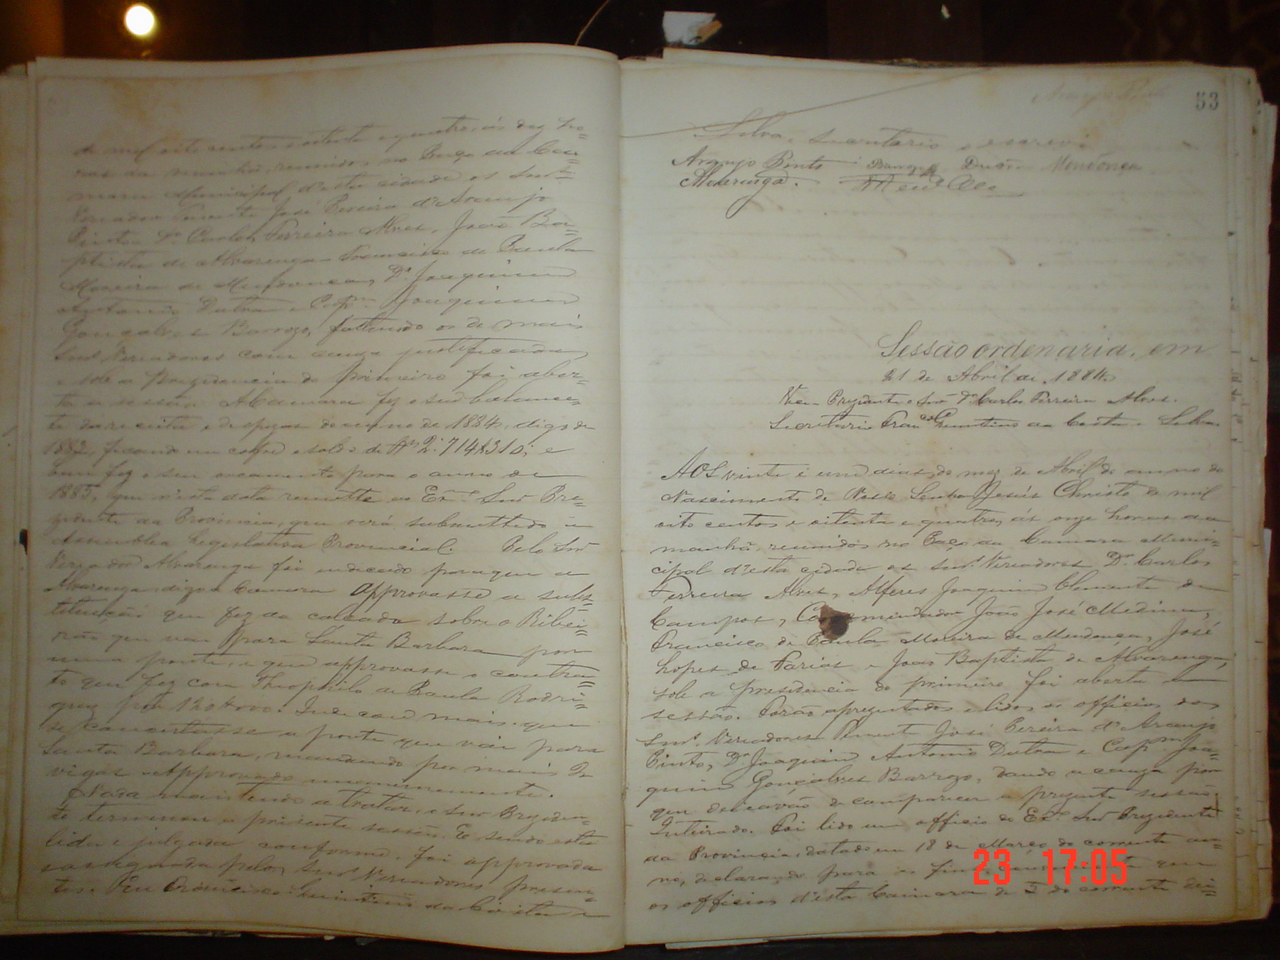 de mil oito centos e oitenta e quatro, ás dez ho=
ras da manhã reunidos no Paço da Ca=
mara Municipal d'esta cidade os Snrs.
Vereadores Tenente José Pereira d'Araujo
Pinto, Dr. Carlos Ferreira Alves, João Ba=
ptista de Alvarenga, Francisco de Paula
Moreira de Mendonça, Dr. Joaquim
Antonio Dutra e Capm. Joaquim
Gonçalves Barrozo, faltando os de mais
Snrs. Vereadores com cauza justificada,
e sob a Prezidencia do primeiro foi aber=
ta a sessão. A Camara fez o seu balance=
te da receita e despeza do anno de 1884, digo de
1883, ficando em cofre o saldo de Rs 2:714$310; e
bem fez o seu orçamento para o anno de
1885, que n'esta data remette ao Exmo. Snr. Pre=
zidente da Provincia, que será submettido á
Assemblea Legislativa Provincial. Pelo Snr.
Vereador Alvarenga foi indicado para que a
Alvarenga digo a Camara approvasse a subs=
tituição que fez da calçada sobre o Ribei=
rão que vai para Santa Barbara por
uma ponte, e que approvasse o contra=
to que fez com Theophilo de Paula Rodri=
gues por
se concertasse a ponte que vai para
Santa Barbara, mandando por mais 2
vigas. Approvado unanimemente.
Nada mais tendo a tratar, o Snr. Preziden=
te terminou a prezente sessão. E sendo esta
lida e julgada conforme, foi approvada
e assignada pelos Snrs. Vereadores prezen=
tes. Eu Quintino da Costa e
53
Silva, secretario o escrevi
Araujo Pinto Barrozo Dutra Mendonça
Alvarenga.
Sessão ordenaria em
21 de Abril de 1884.
Prezidente o Snr. Dr. Carlos Ferreira Alves.
Secretario Franco. Quintino da Costa e Silva.
AOS vinte e um dias do mez de Abril do anno do
Nascimento de Nosso Senhor Jesús Christo de mil
oito centos e oitenta e quatro, ás onze horas da
manhã, reunidos no Paço da Camara Muni=
cipal d'esta cidade os Snrs. Vereadores Dr. Carlos
Ferreira Alves, Alferes Joaquim Clemente de
Campos, Commendador João José Medina,
Francisco de Paula Moreira de Mendonça, José
Lopes de Farias e João Baptista de Alvarenga,
sob a presidencia do primeiro foi aberta a
sessão. Forão aprezentados e lidos os officios dos
Snrs. Vereadores Tenente José Pereira d'Araujo
Pinto, Dr. Joaquim Antonio Dutra e Capm. Joa=
quim Gonçalves Barrozo, dando a cauza por
que deixavão de comparecer a prezente sessão.
Inteirada. Foi lido um officio do Exmo. Snr. Prezidente
da Provincia, datado em 18 de Março do corrente an=
no, declarando para os fins que
os officios d'esta Camara de 3 do corrente
23 17:05